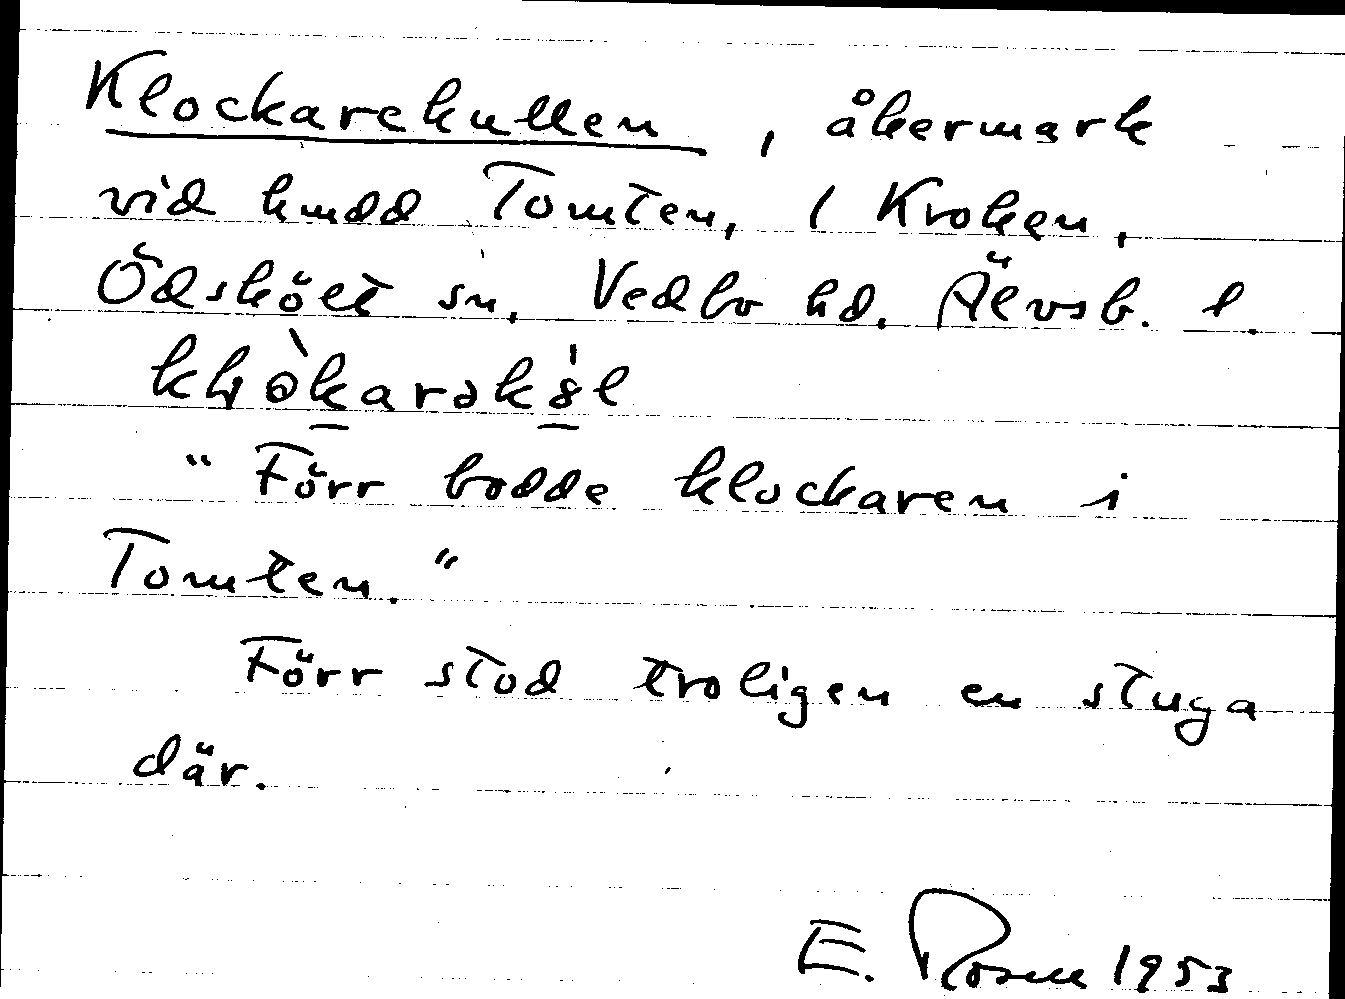 Klockarekullen, åkermark
vid hmdd Tomten, 1 Kroken,
Ödskölt sn, Vedbo hd. Älvsb. l.
"Förr bodde klockaren i
Tomten."
Förr stod troligen en stuga
där.
E. Rosen 1953